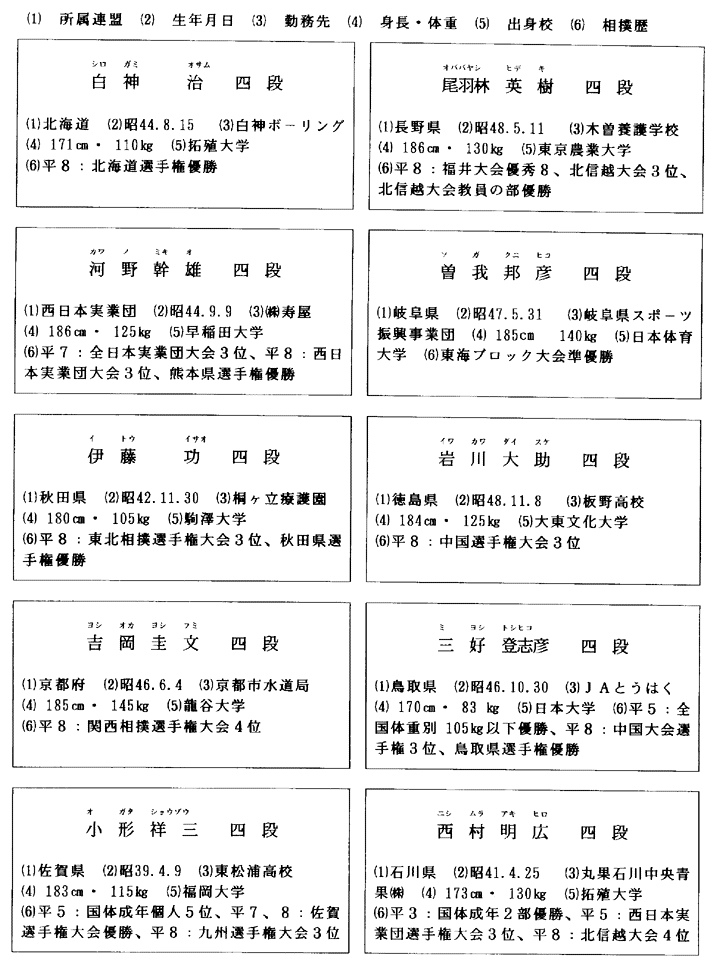 (1) 所属連盟 (2) 生年月日 (3) 勤務先 (4) 身長・体重 (5) 出身校 (6) 相撲歴
シロ ガミ オサム
白神 治 四段
(1)北海道 (2)昭44.8.15 (3)白神ボーリング
(4) 171㎝・ 110㎏ (5)拓殖大学
(6)平8:北海道選手権優勝
オババヤシ ヒデ キ
尾羽林 英樹 四段
(1)長野県 (2)昭48.5.11 (3)木曽養護学校
(4) 186㎝・ 130㎏ (5)東京農業大学
(6)平8:福井大会優秀8、北信越大会3位、
北信越大会教員の部優勝
カワ ノ ミキ オ
河野幹雄 四段
(1)西日本実業団 (2)昭44.9.9 (3)㈱寿屋
(4) 186㎝・ 125㎏ (5)早稲田大学
(6)平7:全日本実業団大会3位、平8:西日
本実業団大会3位、熊本県選手権優勝
ソ ガ クニ ヒコ
曽我邦彦 四段
(1)岐阜県 (2)昭47.5.31 (3)岐阜県スポーツ
振興事業団 (4) 185cm 140㎏ (5)日本体育
大学 (6)東海ブロック大会準優勝
イ トウ イサオ
伊藤 功 四段
(1)秋田県 (2)昭42.11.30 (3)桐ヶ立療護園
(4) 180㎝・ 105㎏ (5)駒澤大学
(6)平8:東北相撲選手権大会3位、秋田県選
手権優勝
イワ カワ ダイ スケ
岩川大助 四段
(1)徳島県 (2)昭48.11.8 (3)板野高校
(4) 184㎝・ 125㎏ (5)大東文化大学
(6)平8:中国選手権大会3位
ヨシ オカ ヨシ フミ
吉岡圭文 四段
(1)京都府 (2)昭46.6.4 (3)京都市水道局
(4) 185㎝・ 145㎏ (5)龍谷大学
(6)平8:関西相撲選手権大会4位
ミ ヨシ トシヒコ
三好 登志彦 四段
(1)鳥取県 (2)昭46.10.30 (3)JAとうはく
(4) 170㎝・ 83 ㎏ (5)日本大学 (6)平5:全
国体重別 105㎏以下優勝、平8:中国大会選
手権3位、鳥取県選手権優勝
オ ガタ ショウゾウ
小形祥三 四段
(1)佐賀県 (2)昭39.4.9 (3)東松浦高校
(4) 183㎝・ 115㎏ (5)福岡大学
(6)平5:国体成年個人5位、平7、8:佐賀
選手権大会優勝、平8:九州選手権大会3位
ニシ ムラ アキ ヒロ
西村明広 四段
(1)石川県 (2)昭41.4.25 (3)丸果石川中央青
果㈱ (4) 173㎝・ 130㎏ (5)拓殖大学
(6)平3:国体成年2部優勝、平5:西日本実
業団選手権大会3位、平8:北信越大会4位